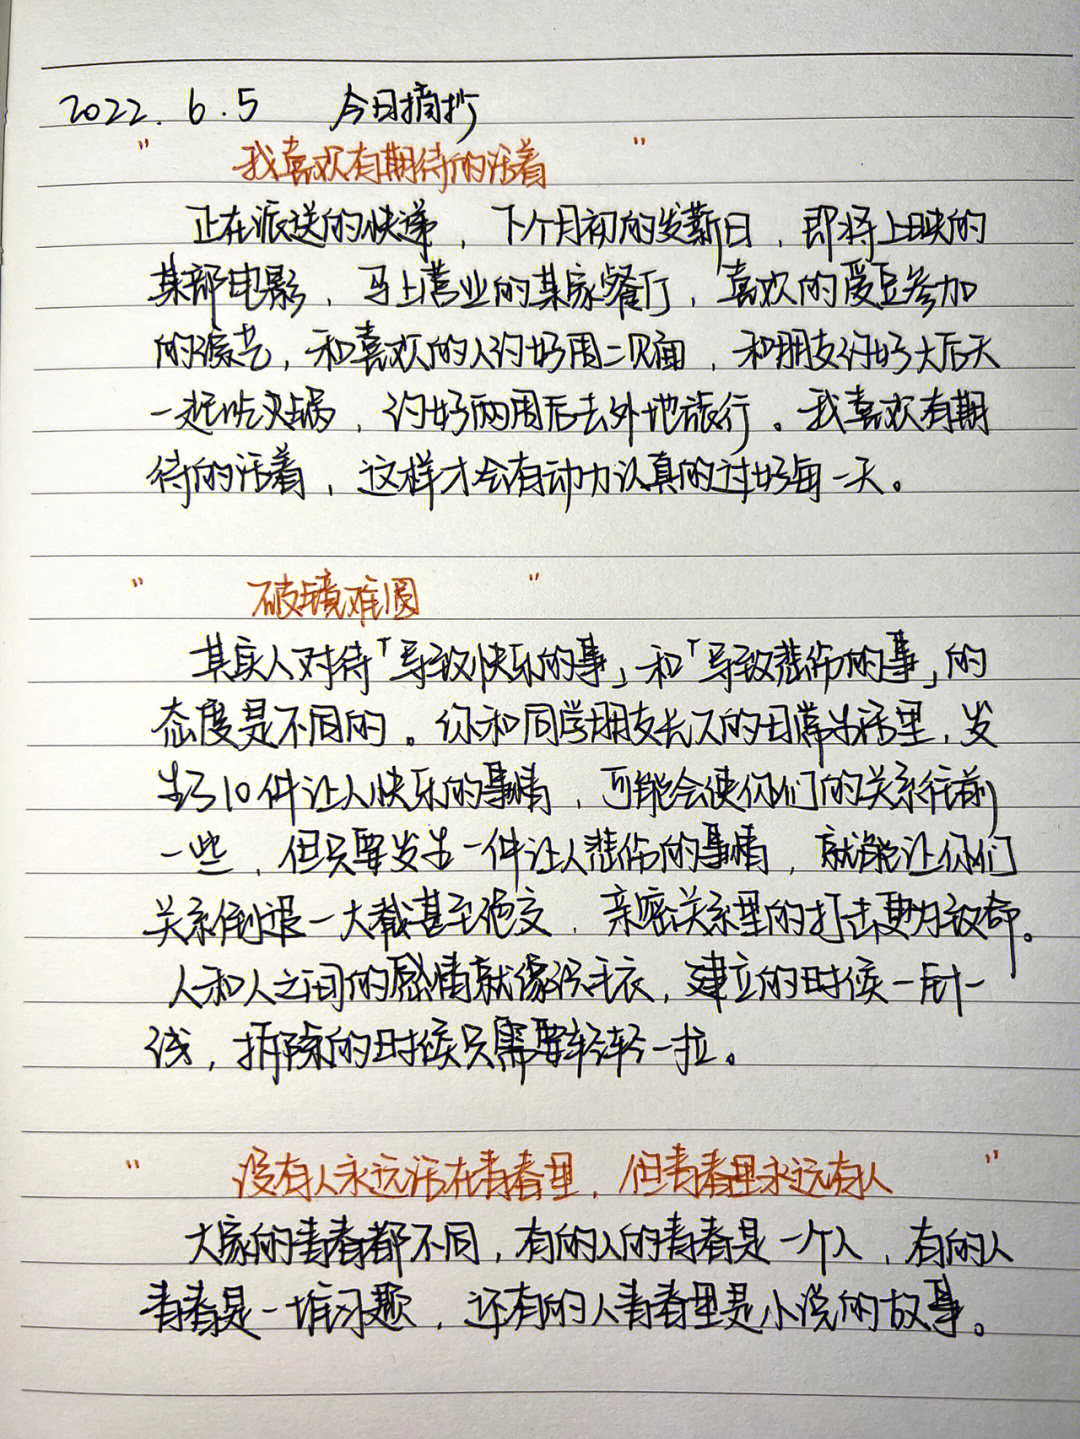 2022.6.5 今日摘抄
" 我喜欢有期待的活着 "
正在派送的快递，下个月初的发薪日，即将上映的
某部电影，马上营业的某家餐厅，喜欢的爱豆参加
的综艺，和喜欢的人约好周二见面，和朋友约好大后天
一起吃火锅，约好两周后去外地旅行。我喜欢有期
待的活着，这样才会有动力认真的过好每一天。
" 破镜难圆 "
其实人对待「导致快乐的事」和「导致悲伤的事」的
态度是不同的。你和同学朋友长久的日常生活里，发
生了10件让人快乐的事情，可能会使你们的关系往前
一些，但只要发生一件让人悲伤的事情，就能让你们
关系倒退一大截甚至绝交，亲密关系里的打击更为致命。
人和人之间的感情就像织毛衣，建立的时候一针一
线，拆除的时候只需要轻轻一拉。
" 没有人永远活在青春里，但青春里永远有人 "
大家的青春都不同，有的人的青春是一个人，有的人
青春是一堆习题，还有的人青春里是小说的故事。